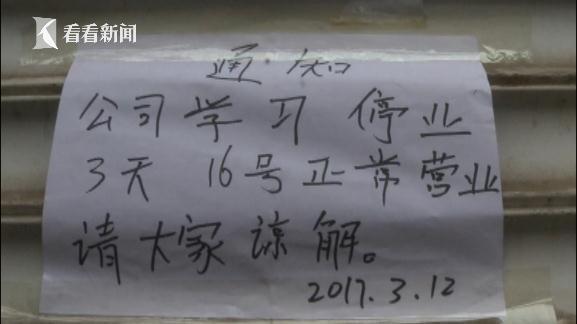 看看新闻
通知
公司学习 停业
3天 16号正常营业
请大家谅解。
2017.3.12